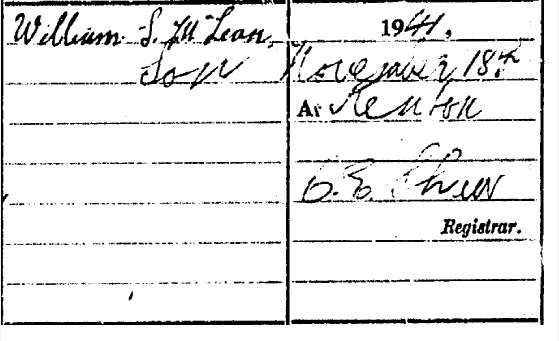 William S. McLean,
Son
1941,
November 18th
At Renton
Registrar.